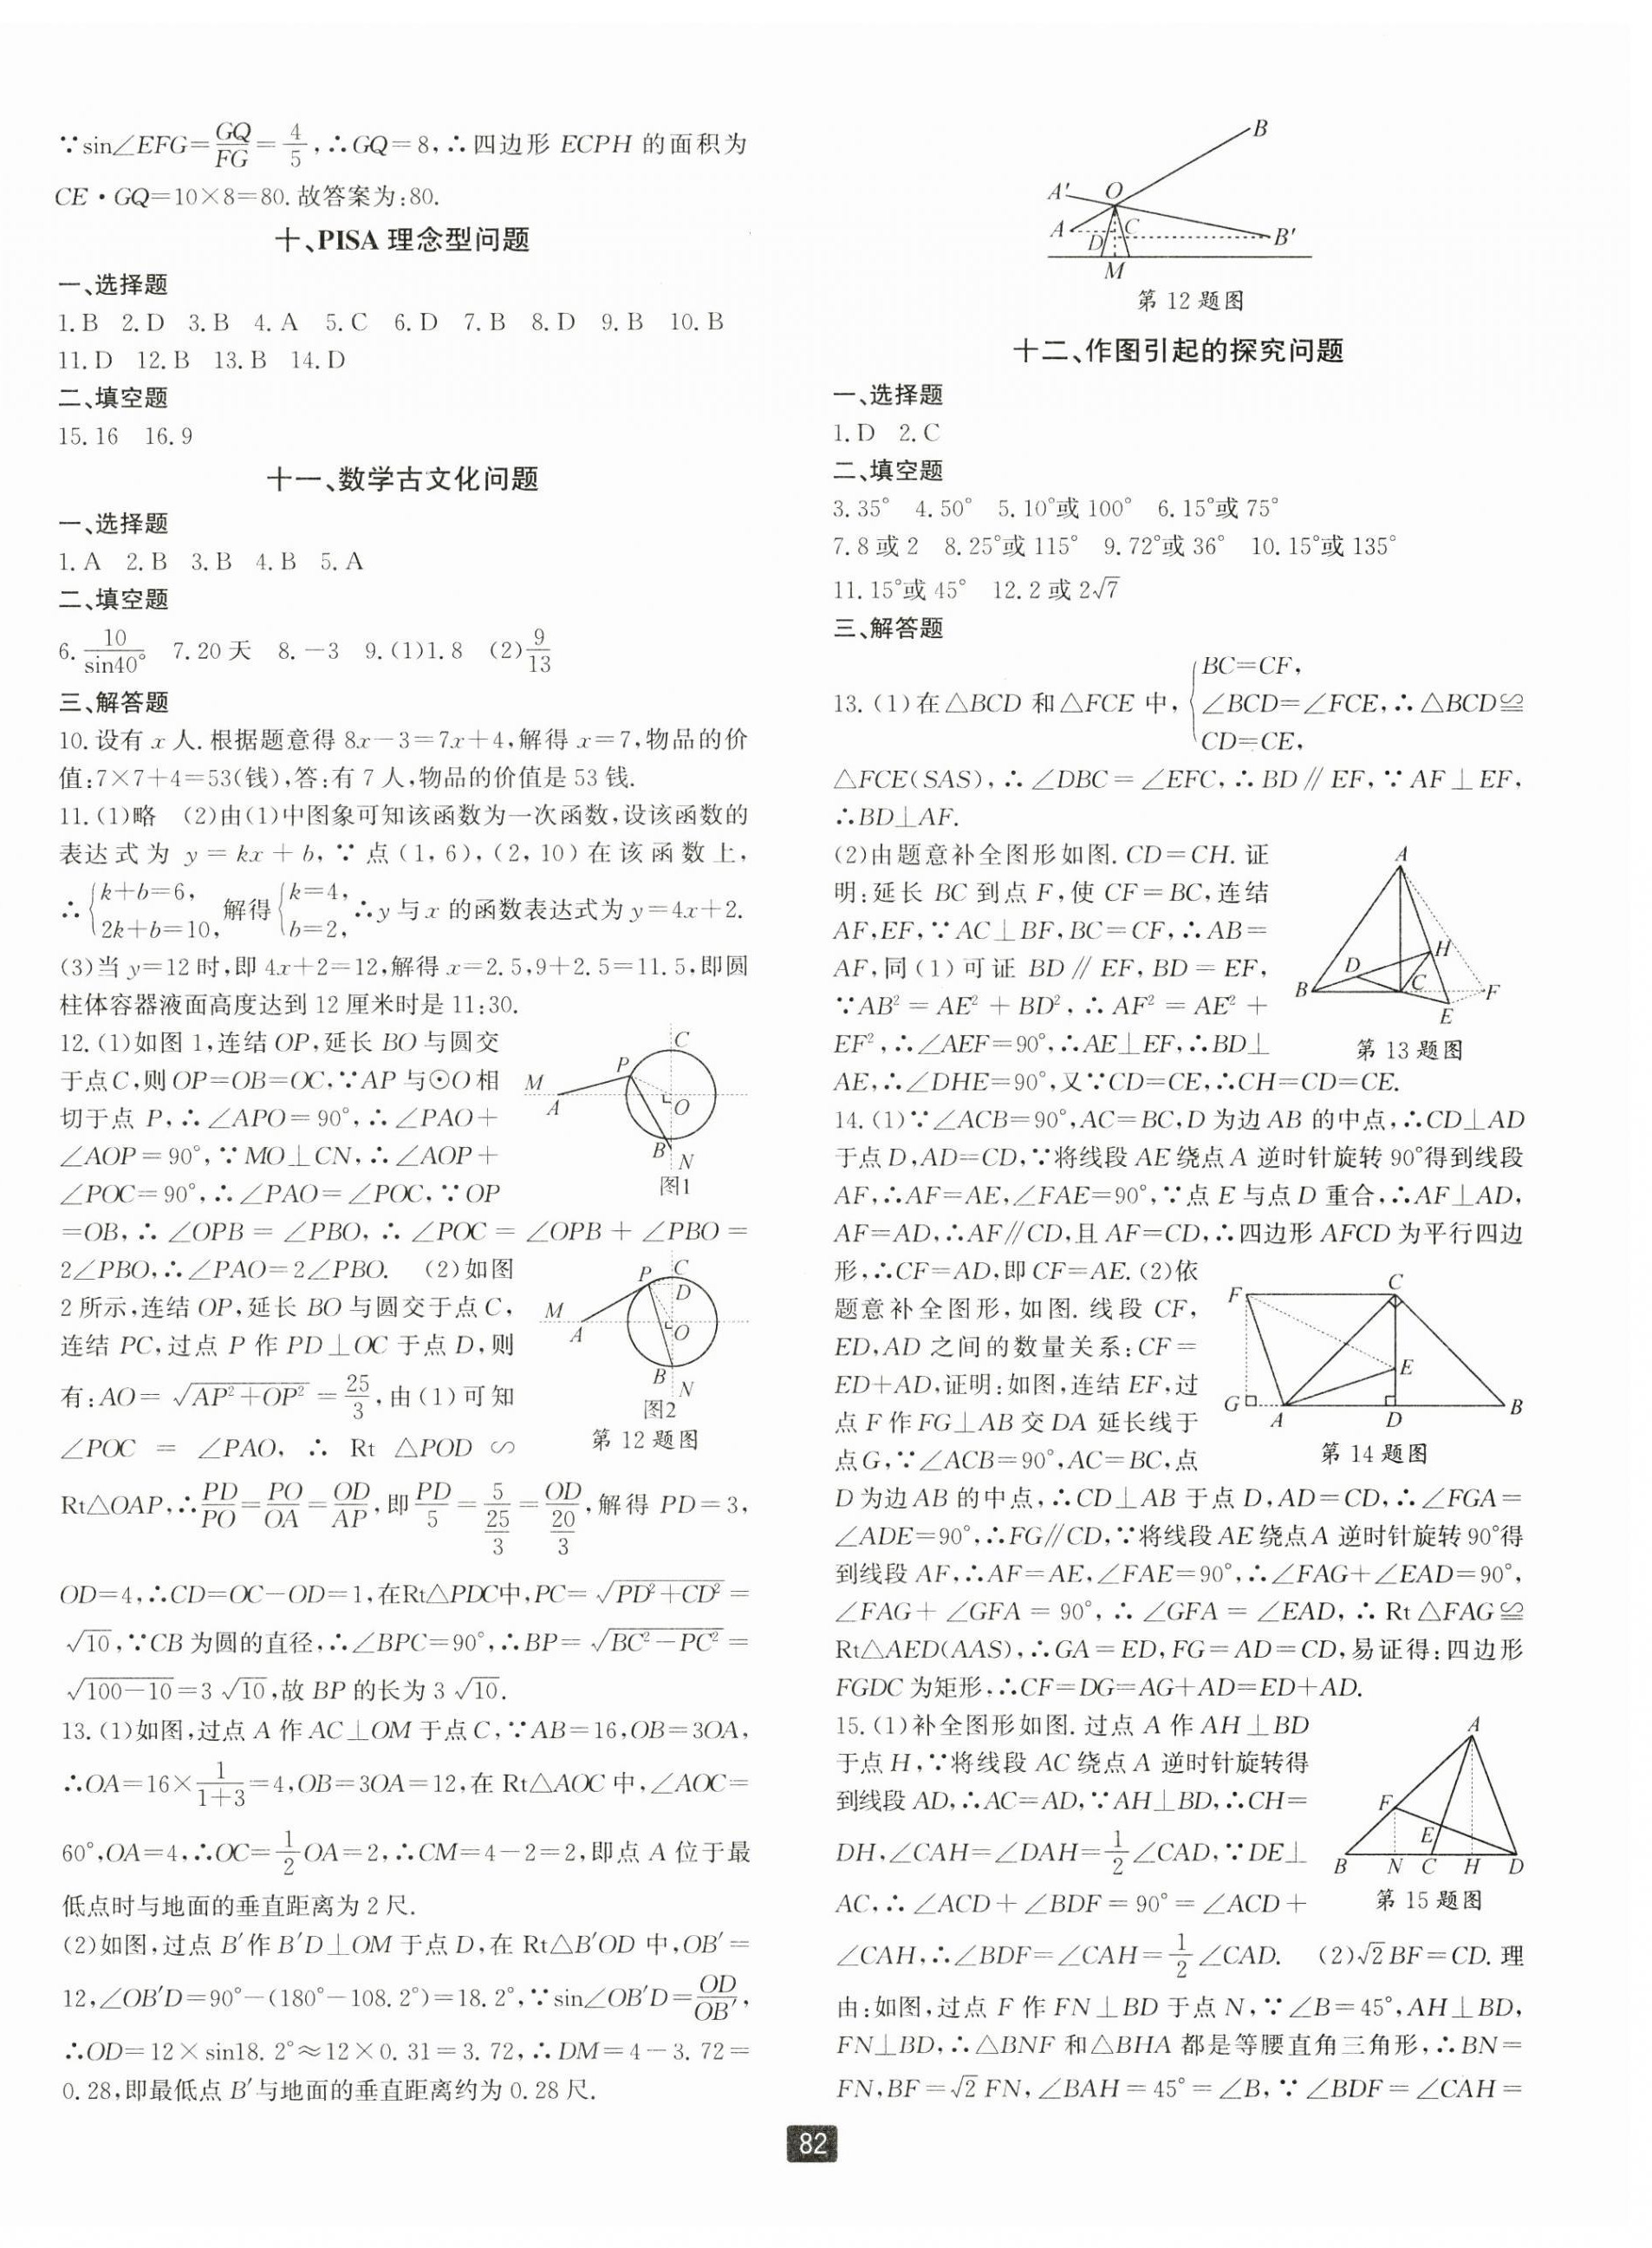 ∵sin∠EFG=GQ/FG=4/5,∴GQ=8,∴四边形 ECPH 的面积为
CE·GQ=10×8=80.故答案为:80.
十、PISA 理念型问题
一、选择题
1.B 2.D 3.B 4.A 5.C 6.D 7.B 8.D 9.B 10.B
11.D 12.B 13.B 14.D
二、填空题
15.16 16.9
十一、数学古文化问题
一、选择题
1.A 2.B 3.B 4.B 5.A
二、填空题
6.10/sin40° 7.20天 8.-3 9.(1)1.8 (2)9/13
三、解答题
10.设有 x 人.根据题意得 8x-3=7x+4,解得 x=7,物品的价
值:7×7+4=53(钱),答:有 7 人,物品的价值是 53 钱.
11.(1)略 (2)由(1)中图象可知该函数为一次函数,设该函数的
表达式为 y=kx+b,∵点(1,6),(2,10)在该函数上,
∴{k+b=6, 2k+b=10, 解得{k=4, b=2, ∴y 与 x 的函数表达式为 y=4x+2.
(3)当 y=12 时,即 4x+2=12,解得 x=2.5,9+2.5=11.5,即圆
柱体容器液面高度达到 12 厘米时是 11:30.
12.(1)如图 1,连结 OP,延长 BO 与圆交
于点C,则 OP=OB=OC,∵AP 与⊙O 相
切于点 P,∴∠APO=90°,∴∠PAO+
∠AOP=90°,∵MO⊥CN,∴∠AOP+
∠POC=90°,∴∠PAO=∠POC,∵OP
C
P
M
A
O
B
N
图1
=OB,∴∠OPB=∠PBO,∴∠POC=∠OPB+∠PBO=
2∠PBO,∴∠PAO=2∠PBO. (2)如图
2 所示,连结 OP,延长 BO 与圆交于点 C,
连结 PC,过点 P 作 PD⊥OC 于点 D,则
有:AO=√(AP²+OP²)=25/3,由(1)可知
∠POC=∠PAO,∴Rt△POD∽
P C
D
M
A
O
B
N
图2
第 12 题图
Rt△OAP,∴PD/PO=PO/OA=OD/AP,即PD/5=5/(25/3)=OD/(20/3),解得 PD=3,
OD=4,∴CD=OC-OD=1,在Rt△PDC中,PC=√(PD²+CD²)=
√10,∵CB 为圆的直径,∴∠BPC=90°,∴BP=√(BC²-PC²)=
√(100-10)=3√10,故 BP 的长为 3√10.
13.(1)如图,过点 A 作 AC⊥OM 于点 C,∵AB=16,OB=3OA,
∴OA=16×1/(1+3)=4,OB=3OA=12,在 Rt△AOC 中,∠AOC=
60°,OA=4,∴OC=1/2OA=2,∴CM=4-2=2,即点 A 位于最
低点时与地面的垂直距离为 2 尺.
(2)如图,过点 B′作 B′D⊥OM 于点 D,在 Rt△B′OD 中,OB′=
12,∠OB′D=90°-(180°-108.2°)=18.2°,∵sin∠OB′D=OD/OB′,
∴OD=12×sin18.2°≈12×0.31=3.72,∴DM=4-3.72=
0.28,即最低点 B′与地面的垂直距离约为 0.28 尺.
B
A′ O
A
D C
B′
M
第 12 题图
十二、作图引起的探究问题
一、选择题
1.D 2.C
二、填空题
3.35° 4.50° 5.10°或 100° 6.15°或 75°
7.8 或 2 8.25°或 115° 9.72°或 36° 10.15°或 135°
11.15°或 45° 12.2 或 2√7
三、解答题
13.(1)在△BCD 和△FCE 中,{BC=CF, ∠BCD=∠FCE, CD=CE, ∴△BCD≌
△FCE(SAS),∴∠DBC=∠EFC,∴BD∥EF,∵AF⊥EF,
∴BD⊥AF.
(2)由题意补全图形如图.CD=CH.证
明:延长 BC 到点 F,使 CF=BC,连结
AF,EF,∵AC⊥BF,BC=CF,∴AB=
AF,同(1)可证 BD∥EF,BD=EF,
∵AB²=AE²+BD²,∴AF²=AE²+
EF²,∴∠AEF=90°,∴AE⊥EF,∴BD⊥
A
H
D
B
C
F
E
第 13 题图
AE,∴∠DHE=90°,又∵CD=CE,∴CH=CD=CE.
14.(1)∵∠ACB=90°,AC=BC,D 为边 AB 的中点,∴CD⊥AD
于点 D,AD=CD,∵将线段 AE 绕点 A 逆时针旋转 90°得到线段
AF,∴AF=AE,∠FAE=90°,∵点 E 与点 D 重合,∴AF⊥AD,
AF=AD,∴AF∥CD,且 AF=CD,∴四边形 AFCD 为平行四边
形,∴CF=AD,即 CF=AE.(2)依
题意补全图形,如图.线段 CF,
ED,AD 之间的数量关系:CF=
ED+AD,证明:如图,连结 EF,过
点 F 作 FG⊥AB 交 DA 延长线于
点 G,∵∠ACB=90°,AC=BC,点
F
C
E
G
A
D
B
第 14 题图
D 为边 AB 的中点,∴CD⊥AB 于点 D,AD=CD,∴∠FGA=
∠ADE=90°,∴FG∥CD,∵将线段 AE 绕点 A 逆时针旋转 90°得
到线段 AF,∴AF=AE,∠FAE=90°,∴∠FAG+∠EAD=90°,
∠FAG+∠GFA=90°,∴∠GFA=∠EAD,∴Rt△FAG≌
Rt△AED(AAS),∴GA=ED,FG=AD=CD,易证得:四边形
FGDC 为矩形,∴CF=DG=AG+AD=ED+AD.
15.(1)补全图形如图.过点 A 作 AH⊥BD
于点 H,∵将线段 AC 绕点 A 逆时针旋转得
到线段 AD,∴AC=AD,∵AH⊥BD,∴CH=
DH,∠CAH=∠DAH=1/2∠CAD,∵DE⊥
AC,∴∠ACD+∠BDF=90°=∠ACD+
A
F
E
B N C H D
第 15 题图
∠CAH,∴∠BDF=∠CAH=1/2∠CAD. (2)√2BF=CD.理
由:如图,过点 F 作 FN⊥BD 于点 N,∵∠B=45°,AH⊥BD,
FN⊥BD,∴△BNF 和△BHA 都是等腰直角三角形,∴BN=
FN,BF=√2FN,∠BAH=45°=∠B,∵∠BDF=∠CAH=
82